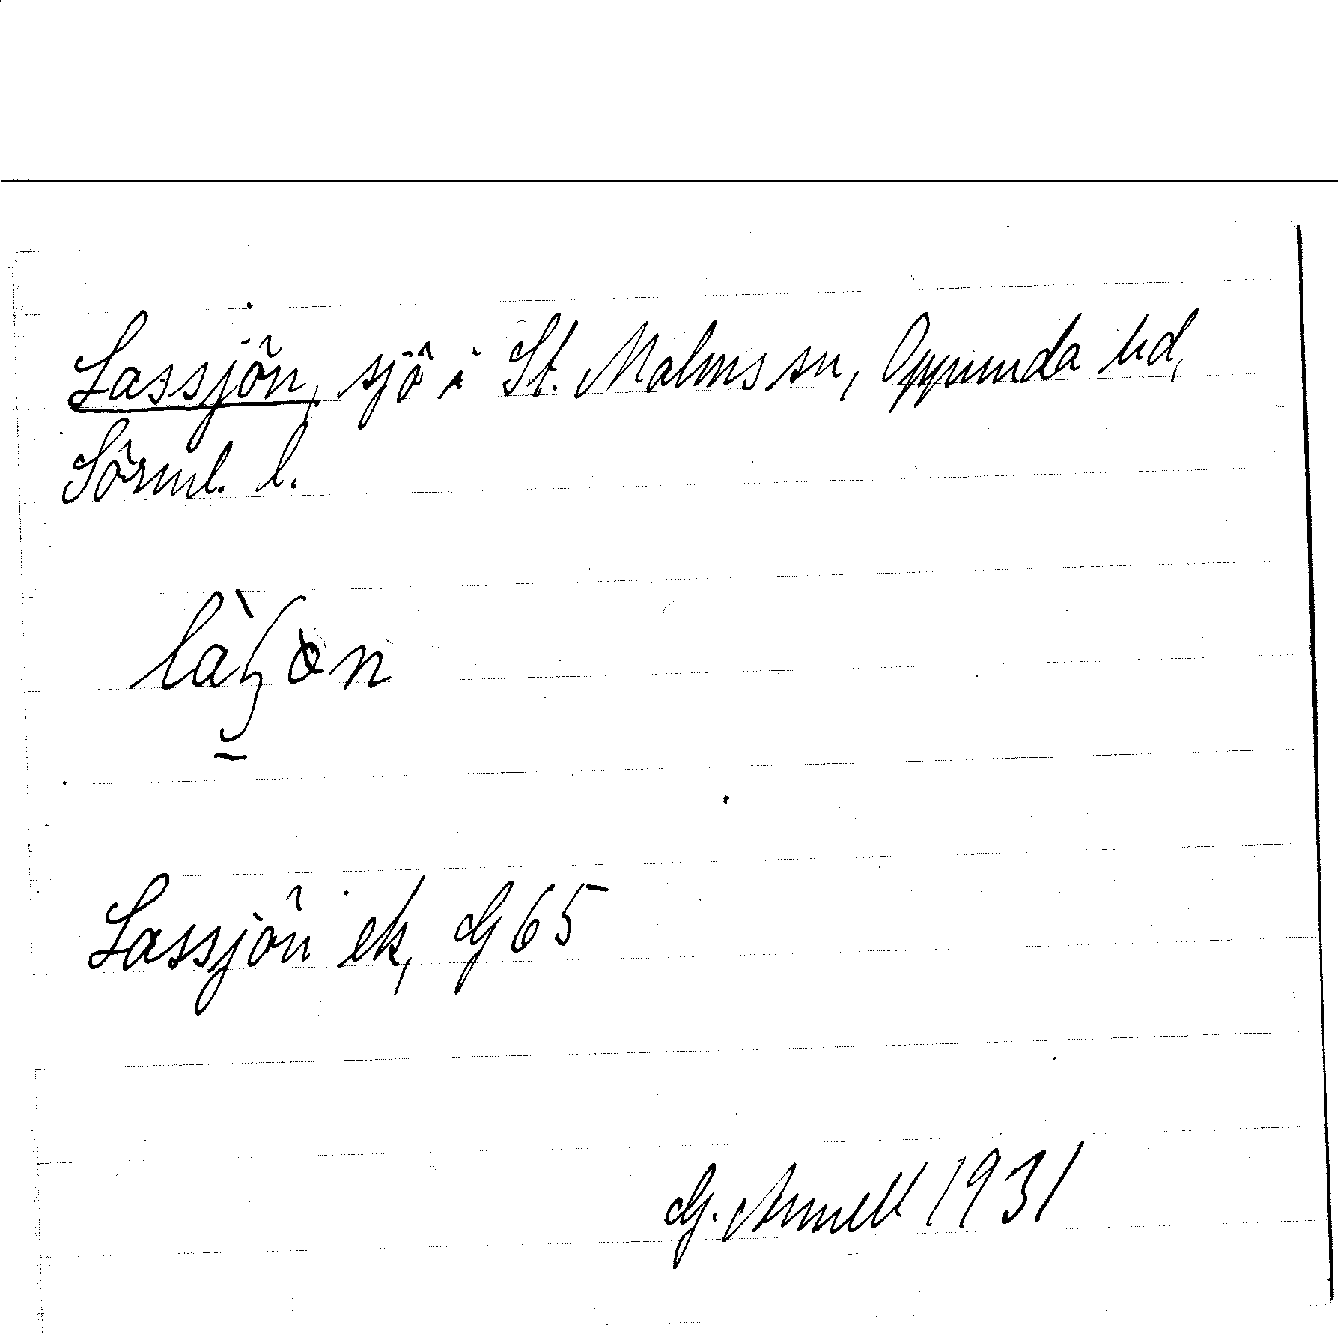 Lassjön, sjö i St. Malms sn, Oppunda hd,
Sörml. l.
Lassjön ek, G 65
G. Annell 1931